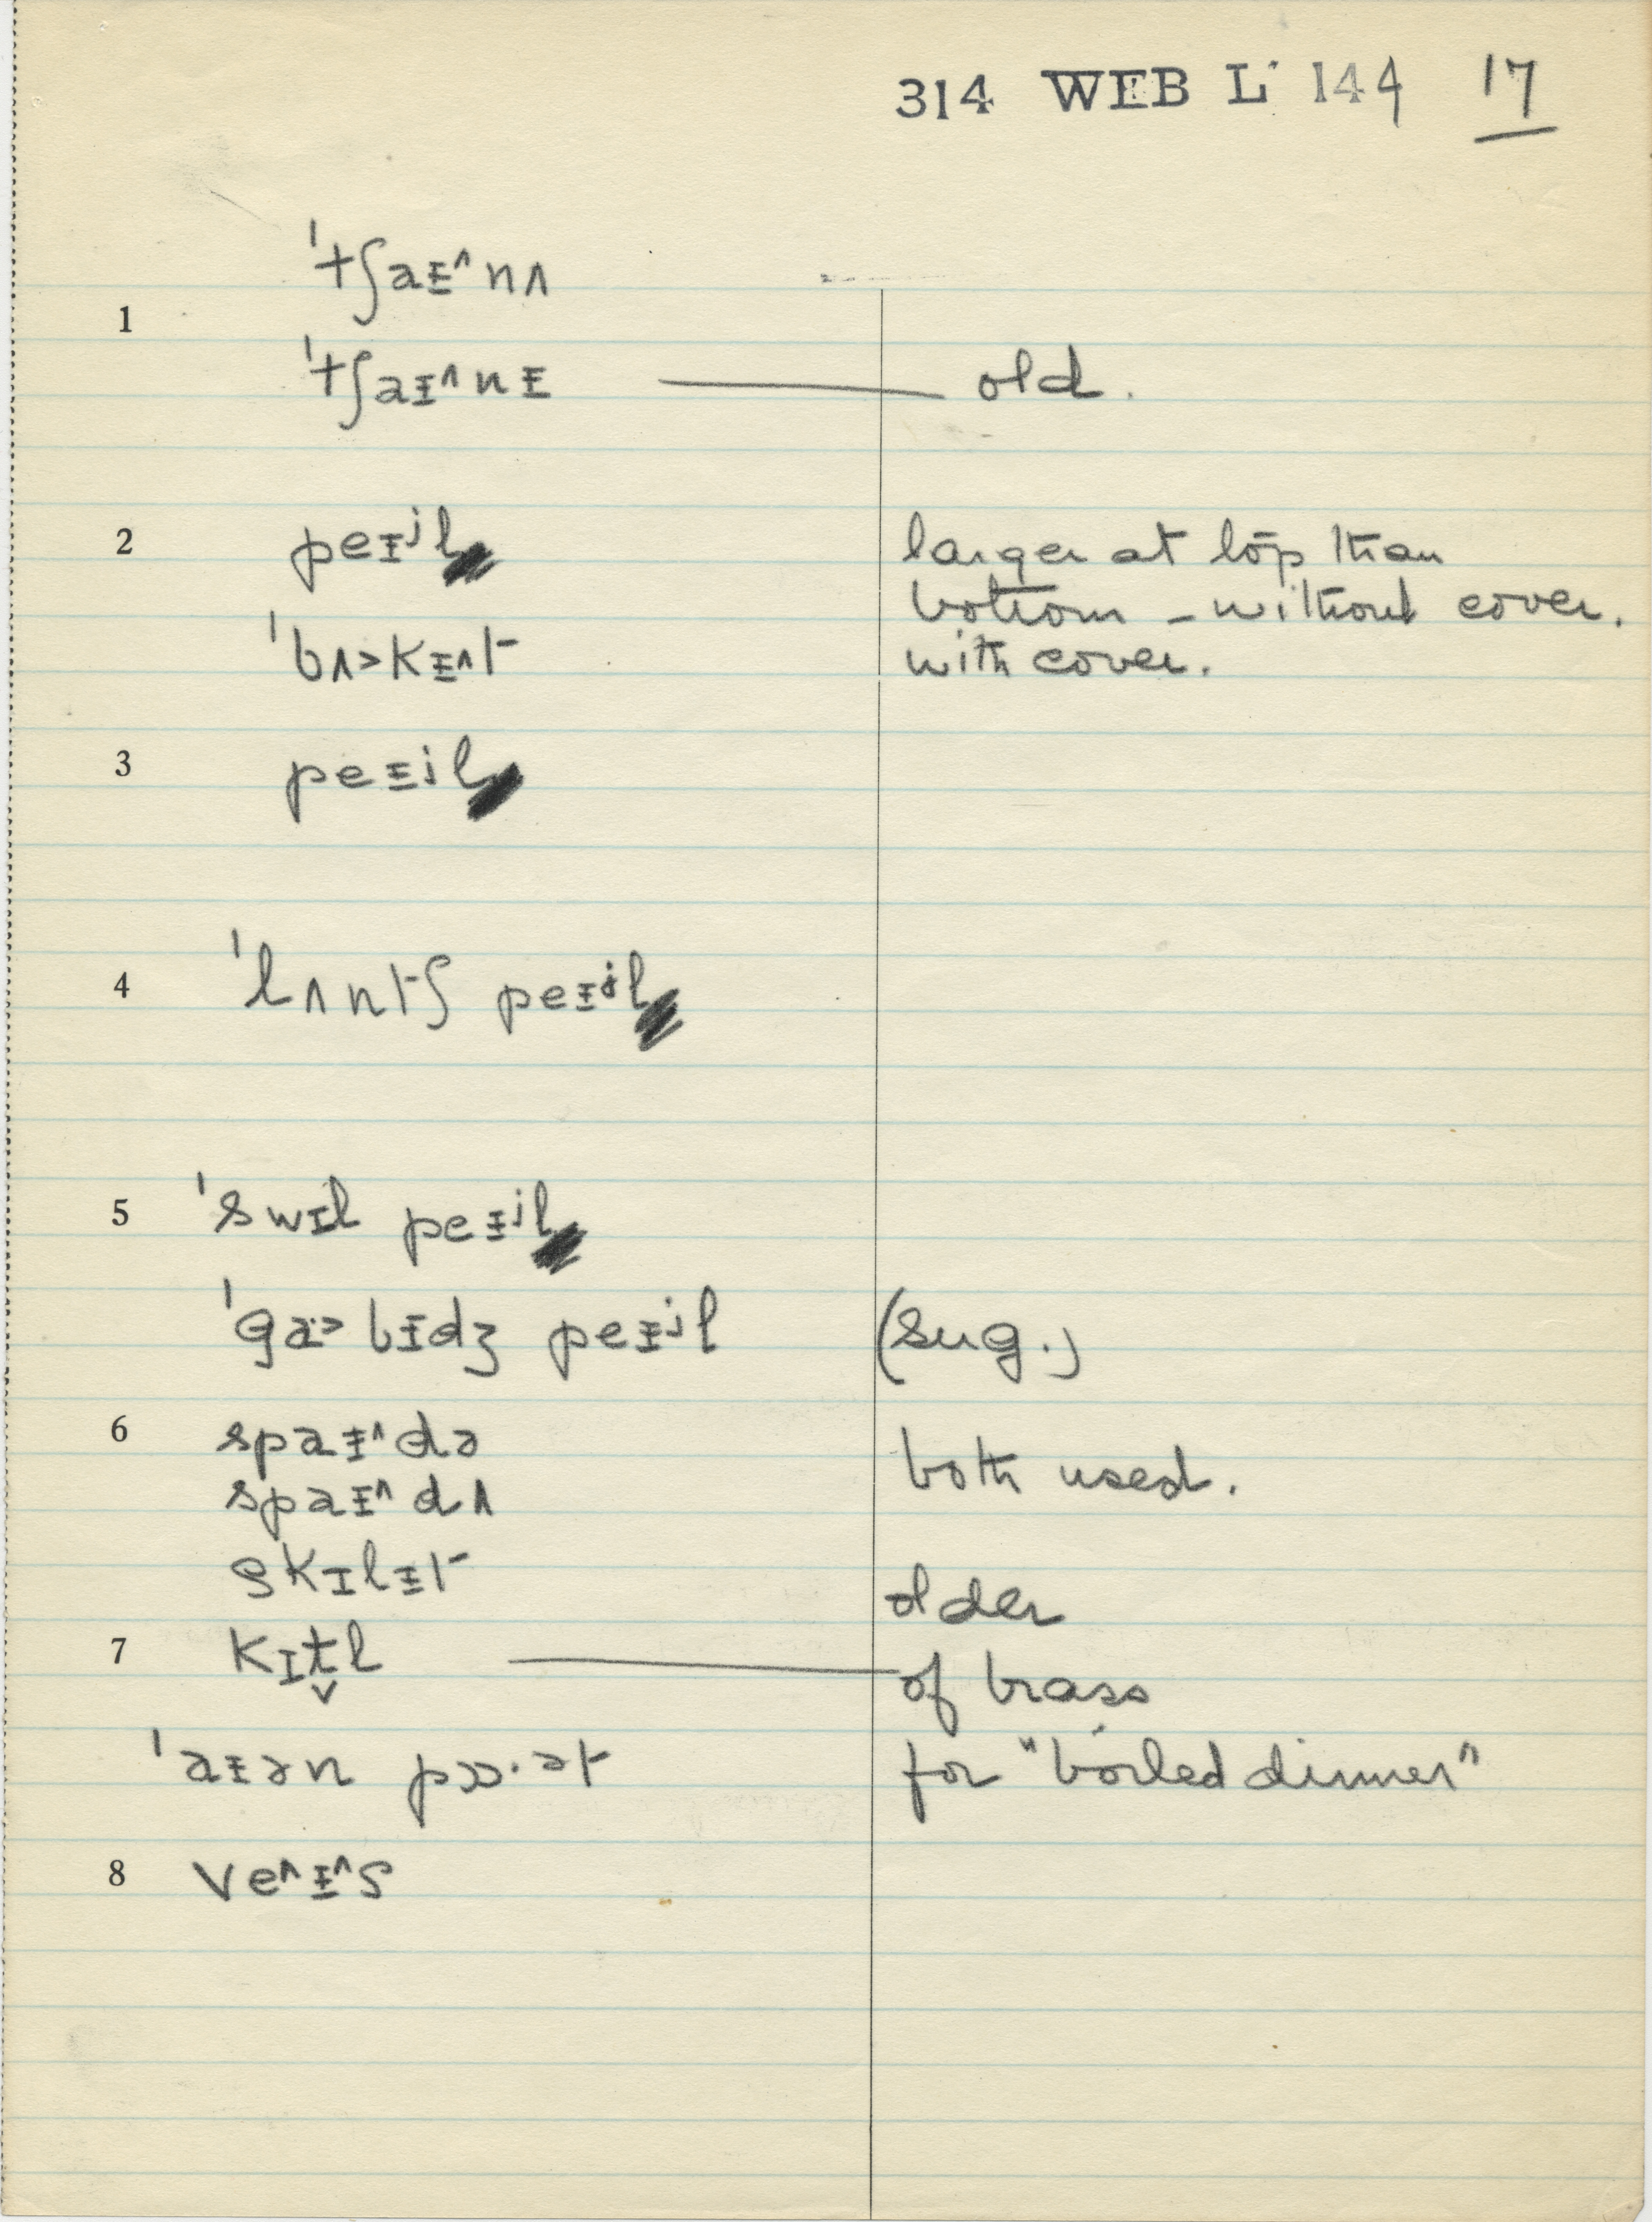 314 WEB L 144 17
1 ˈtʃaɪ^nʌ
ˈtʃaɪ^nɪ — old.
2 peɪʲl larger at top than
bottom – without cover.
ˈbʌ>kɪ^t with cover.
3 peɪʲl
4 ˈlʌntʃ peɪʲl
5 ˈswɪl peɪʲl
ˈga>bɪdʒ peɪʲl (sug.)
6 spaɪ^də
both used.
spaɪ^dʌ
skɪlɪt older
7 kɪt̬l — of brass
ˈaɪən pɒɒ·ət for "boiled dinner"
8 ve^ɪ^s